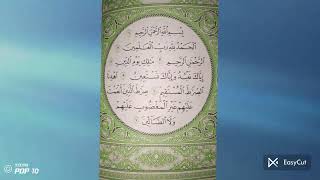 بِسْمِ اللَّهِ الرَّحْمَٰنِ الرَّحِيمِ
الْحَمْدُ لِلَّهِ رَبِّ الْعَالَمِينَ
الرَّحْمَٰنِ الرَّحِيمِ مَالِكِ يَوْمِ الدِّينِ
إِيَّاكَ نَعْبُدُ وَإِيَّاكَ نَسْتَعِينُ اهْدِنَا
الصِّرَاطَ الْمُسْتَقِيمَ صِرَاطَ الَّذِينَ أَنْعَمْتَ
عَلَيْهِمْ غَيْرِ الْمَغْضُوبِ عَلَيْهِمْ
وَلَا الضَّالِّينَ
POP 10
EasyCut